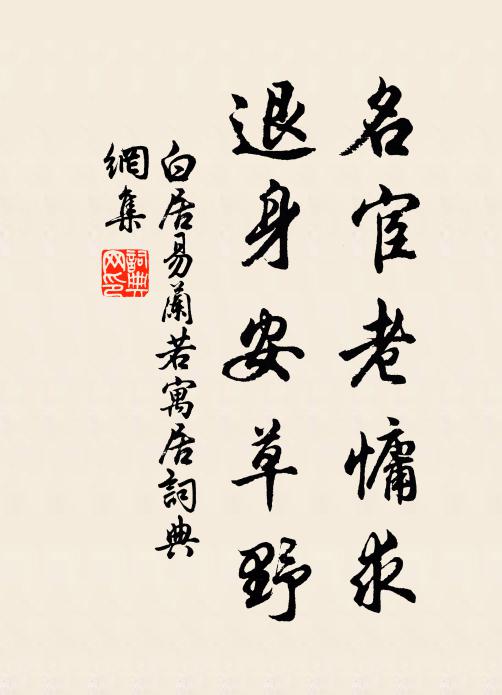 名宦老慵求
退身安草野
白居易蘭若寓居詞典
網集
詞典网印